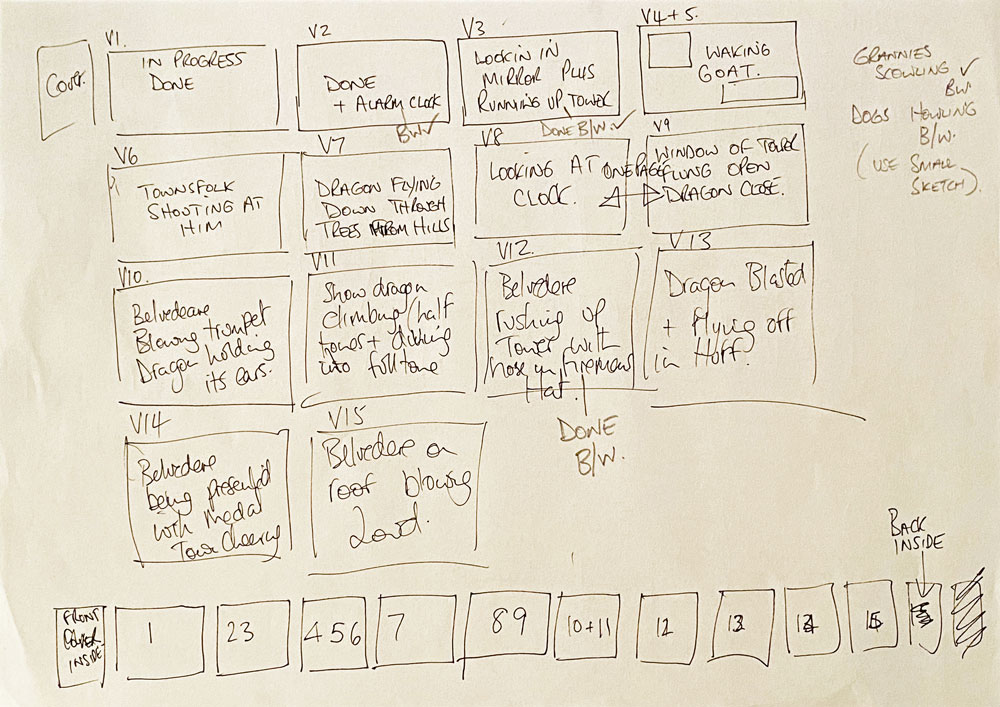 Cover.
V1.
IN PROGRESS
DONE
V2
DONE
+ ALARM CLOCK
BW ✓
V3
LOOKIN IN
MIRROR PLUS
RUNNING UP TOWER
DONE B/W. ✓
V4+5.
WAKING
GOAT.
GRANNIES
SCOWLING ✓
BW.
DOGS HOWLING
B/W.
(USE SMALL
SKETCH).
V6
TOWNSFOLK
SHOOTING AT
HIM
V7
DRAGON FLYING
DOWN THROUGH
TREES FROM HILLS
V8
LOOKING AT
CLOCK.
ONE PAGE
V9
WINDOW OF TOWER
FLUNG OPEN
DRAGON CLOSE.
V10.
Belvedeare
Blowing trumpet
Dragon holding
its ears.
V11
Show dragon
climbing/half
tones +
into full tone
V12.
Belvedere
rushing up
Tower with
hose in firemans
Hat.
DONE
B/W.
V13
Dragon Blasted
+ Flying off
in Huff.
V14
Belvedere
being presented
with medal
Town Cheering
V15
Belvedere on
roof blowing
Loud.
BACK
INSIDE
FRONT
COVER
INSIDE
1
23
456
7
89
10+11
12
13
14
15